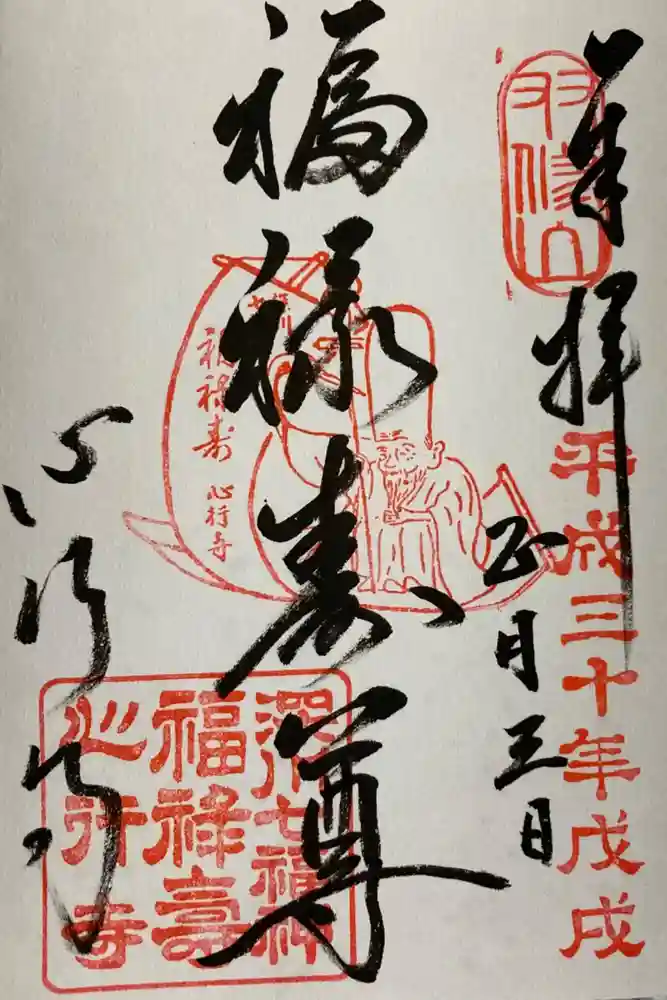 奉拝
双修山
平成三十年戊戌
正月三日
福禄寿尊
福禄寿
心行寺
深川七福神
福禄壽
心行寺
心行寺